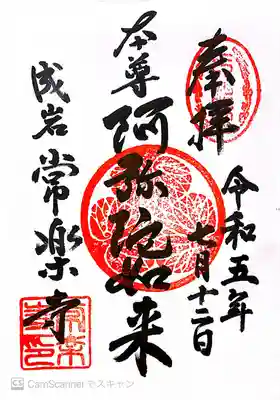 奉拝
令和五年
七月十二日
本尊
阿弥陀如来
成岩
常楽寺
CS CamScanner でスキャン